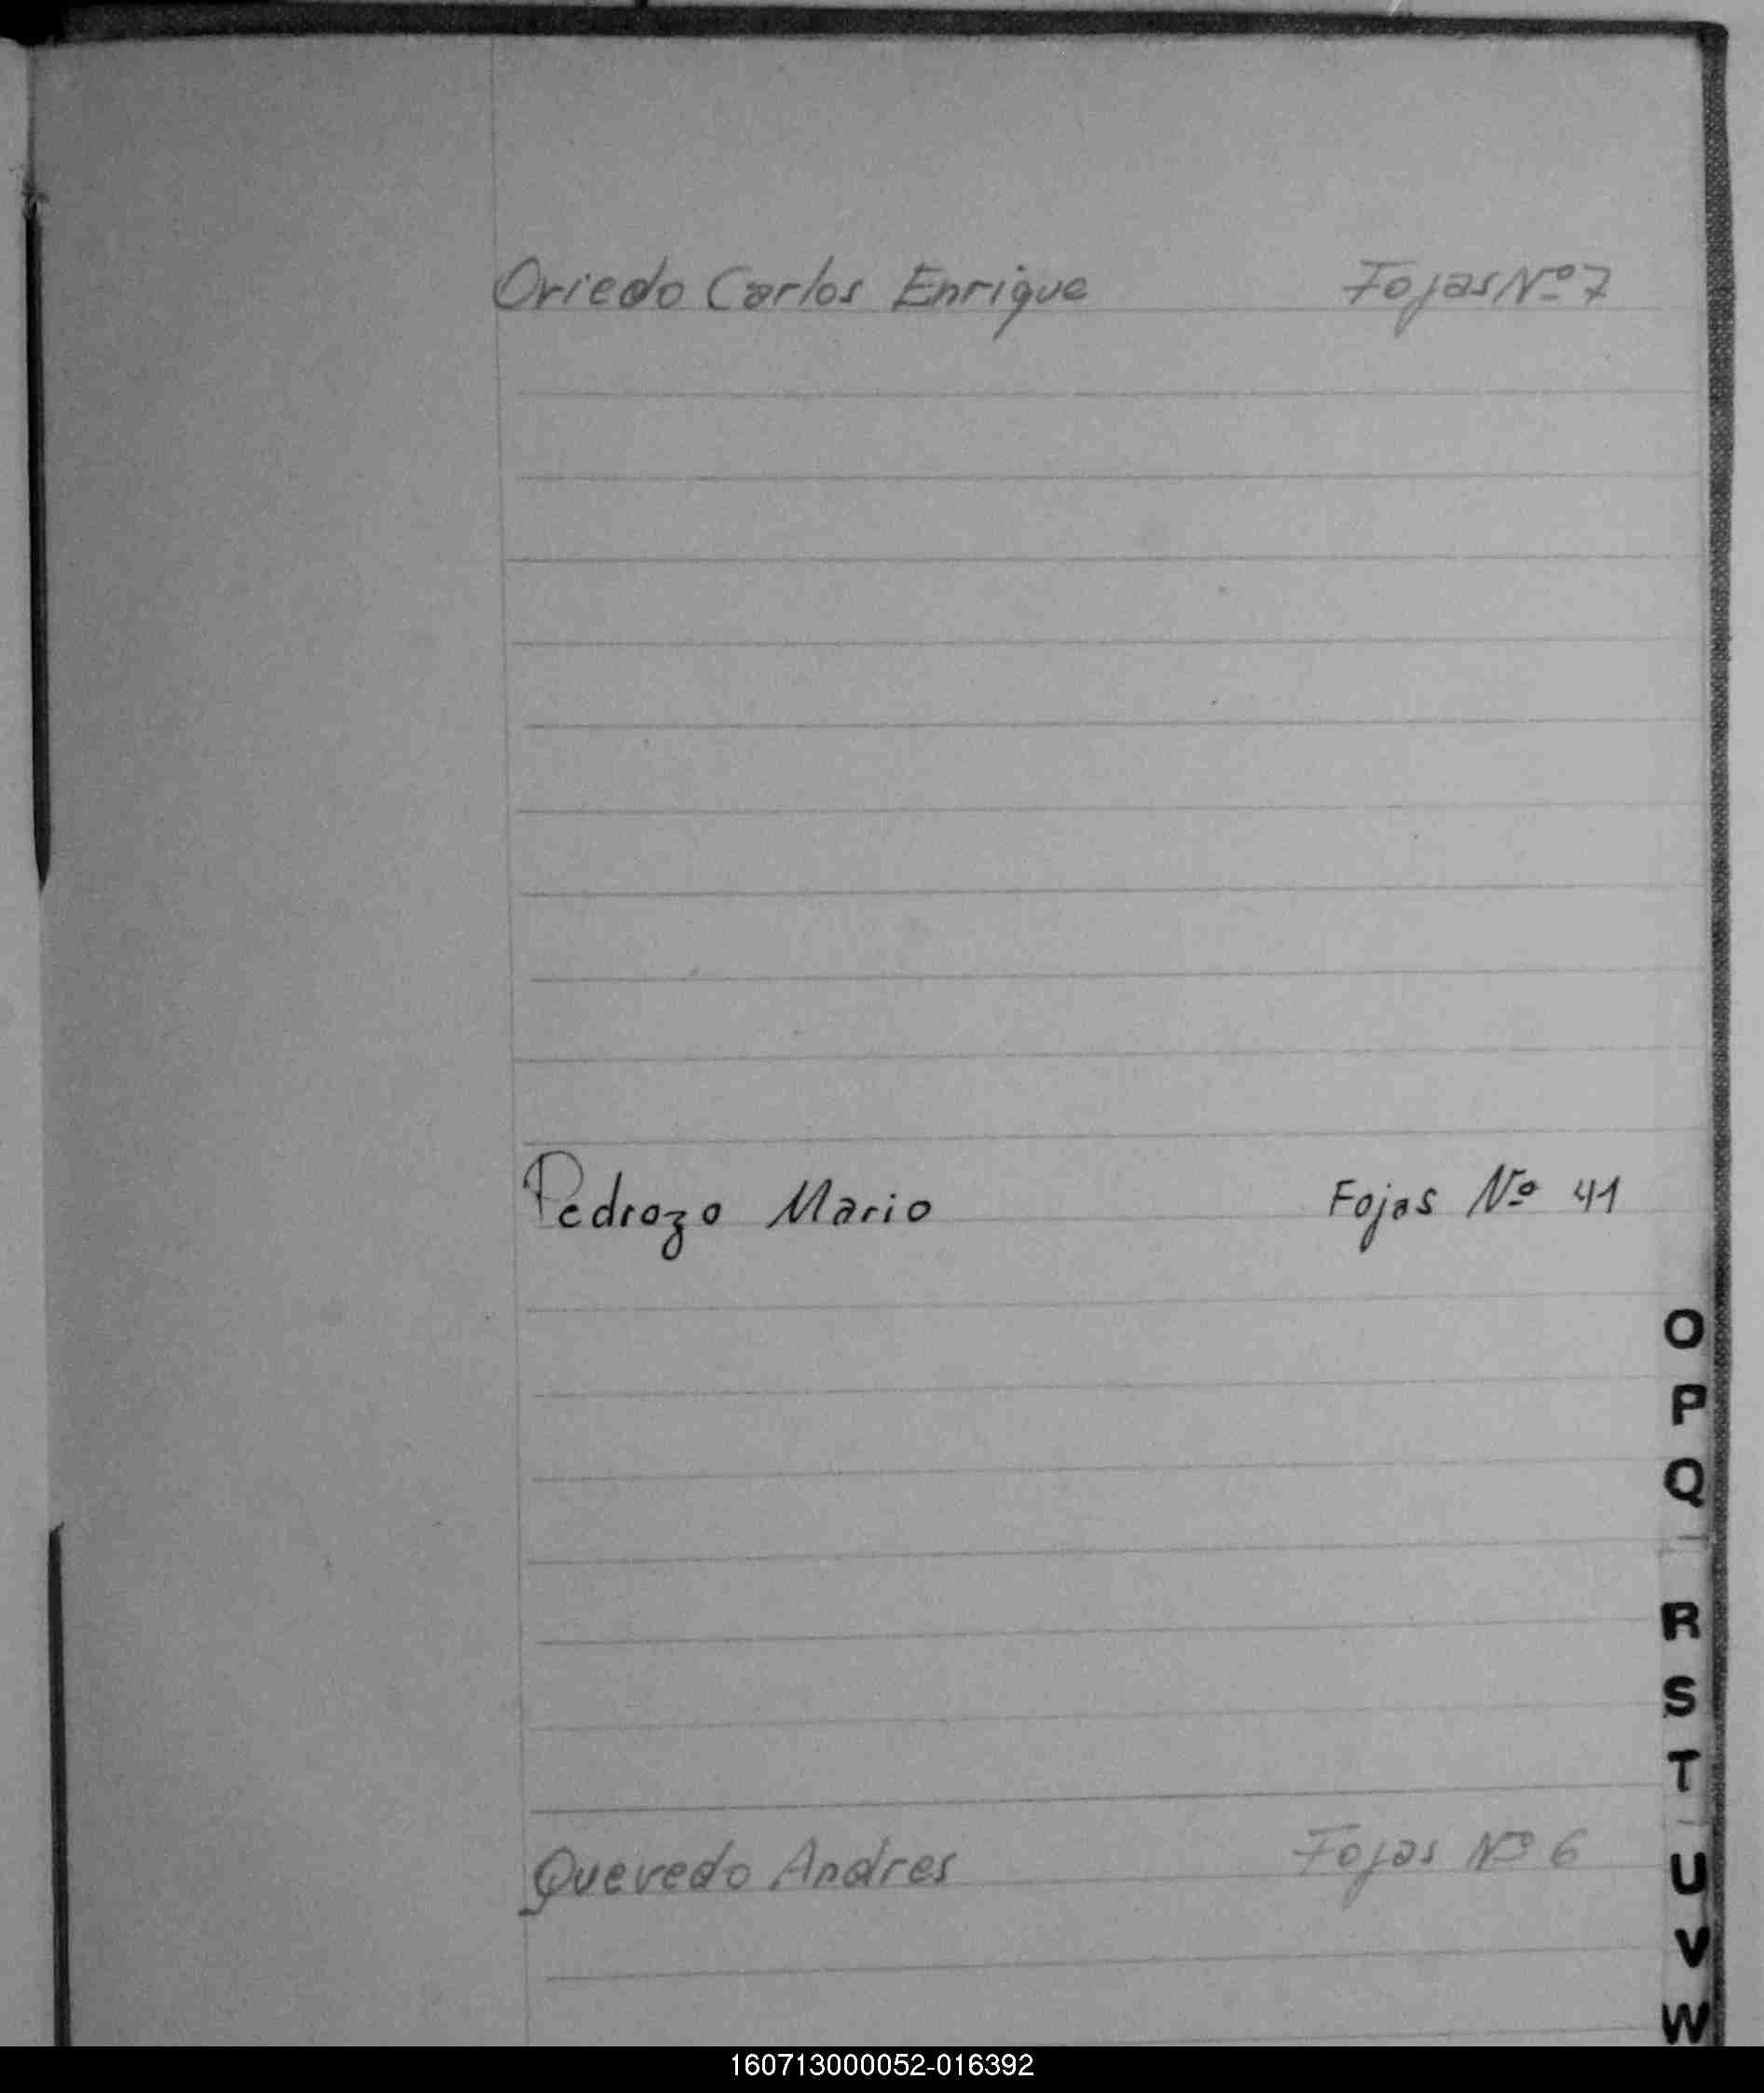 Oviedo Carlos Enrique Fojas Nº 7
Pedrozo Mario Fojas Nº 41
O
P
Q
R
S
T
Quevedo Andres Fojas Nº 6
U
V
W
160713000052-016392